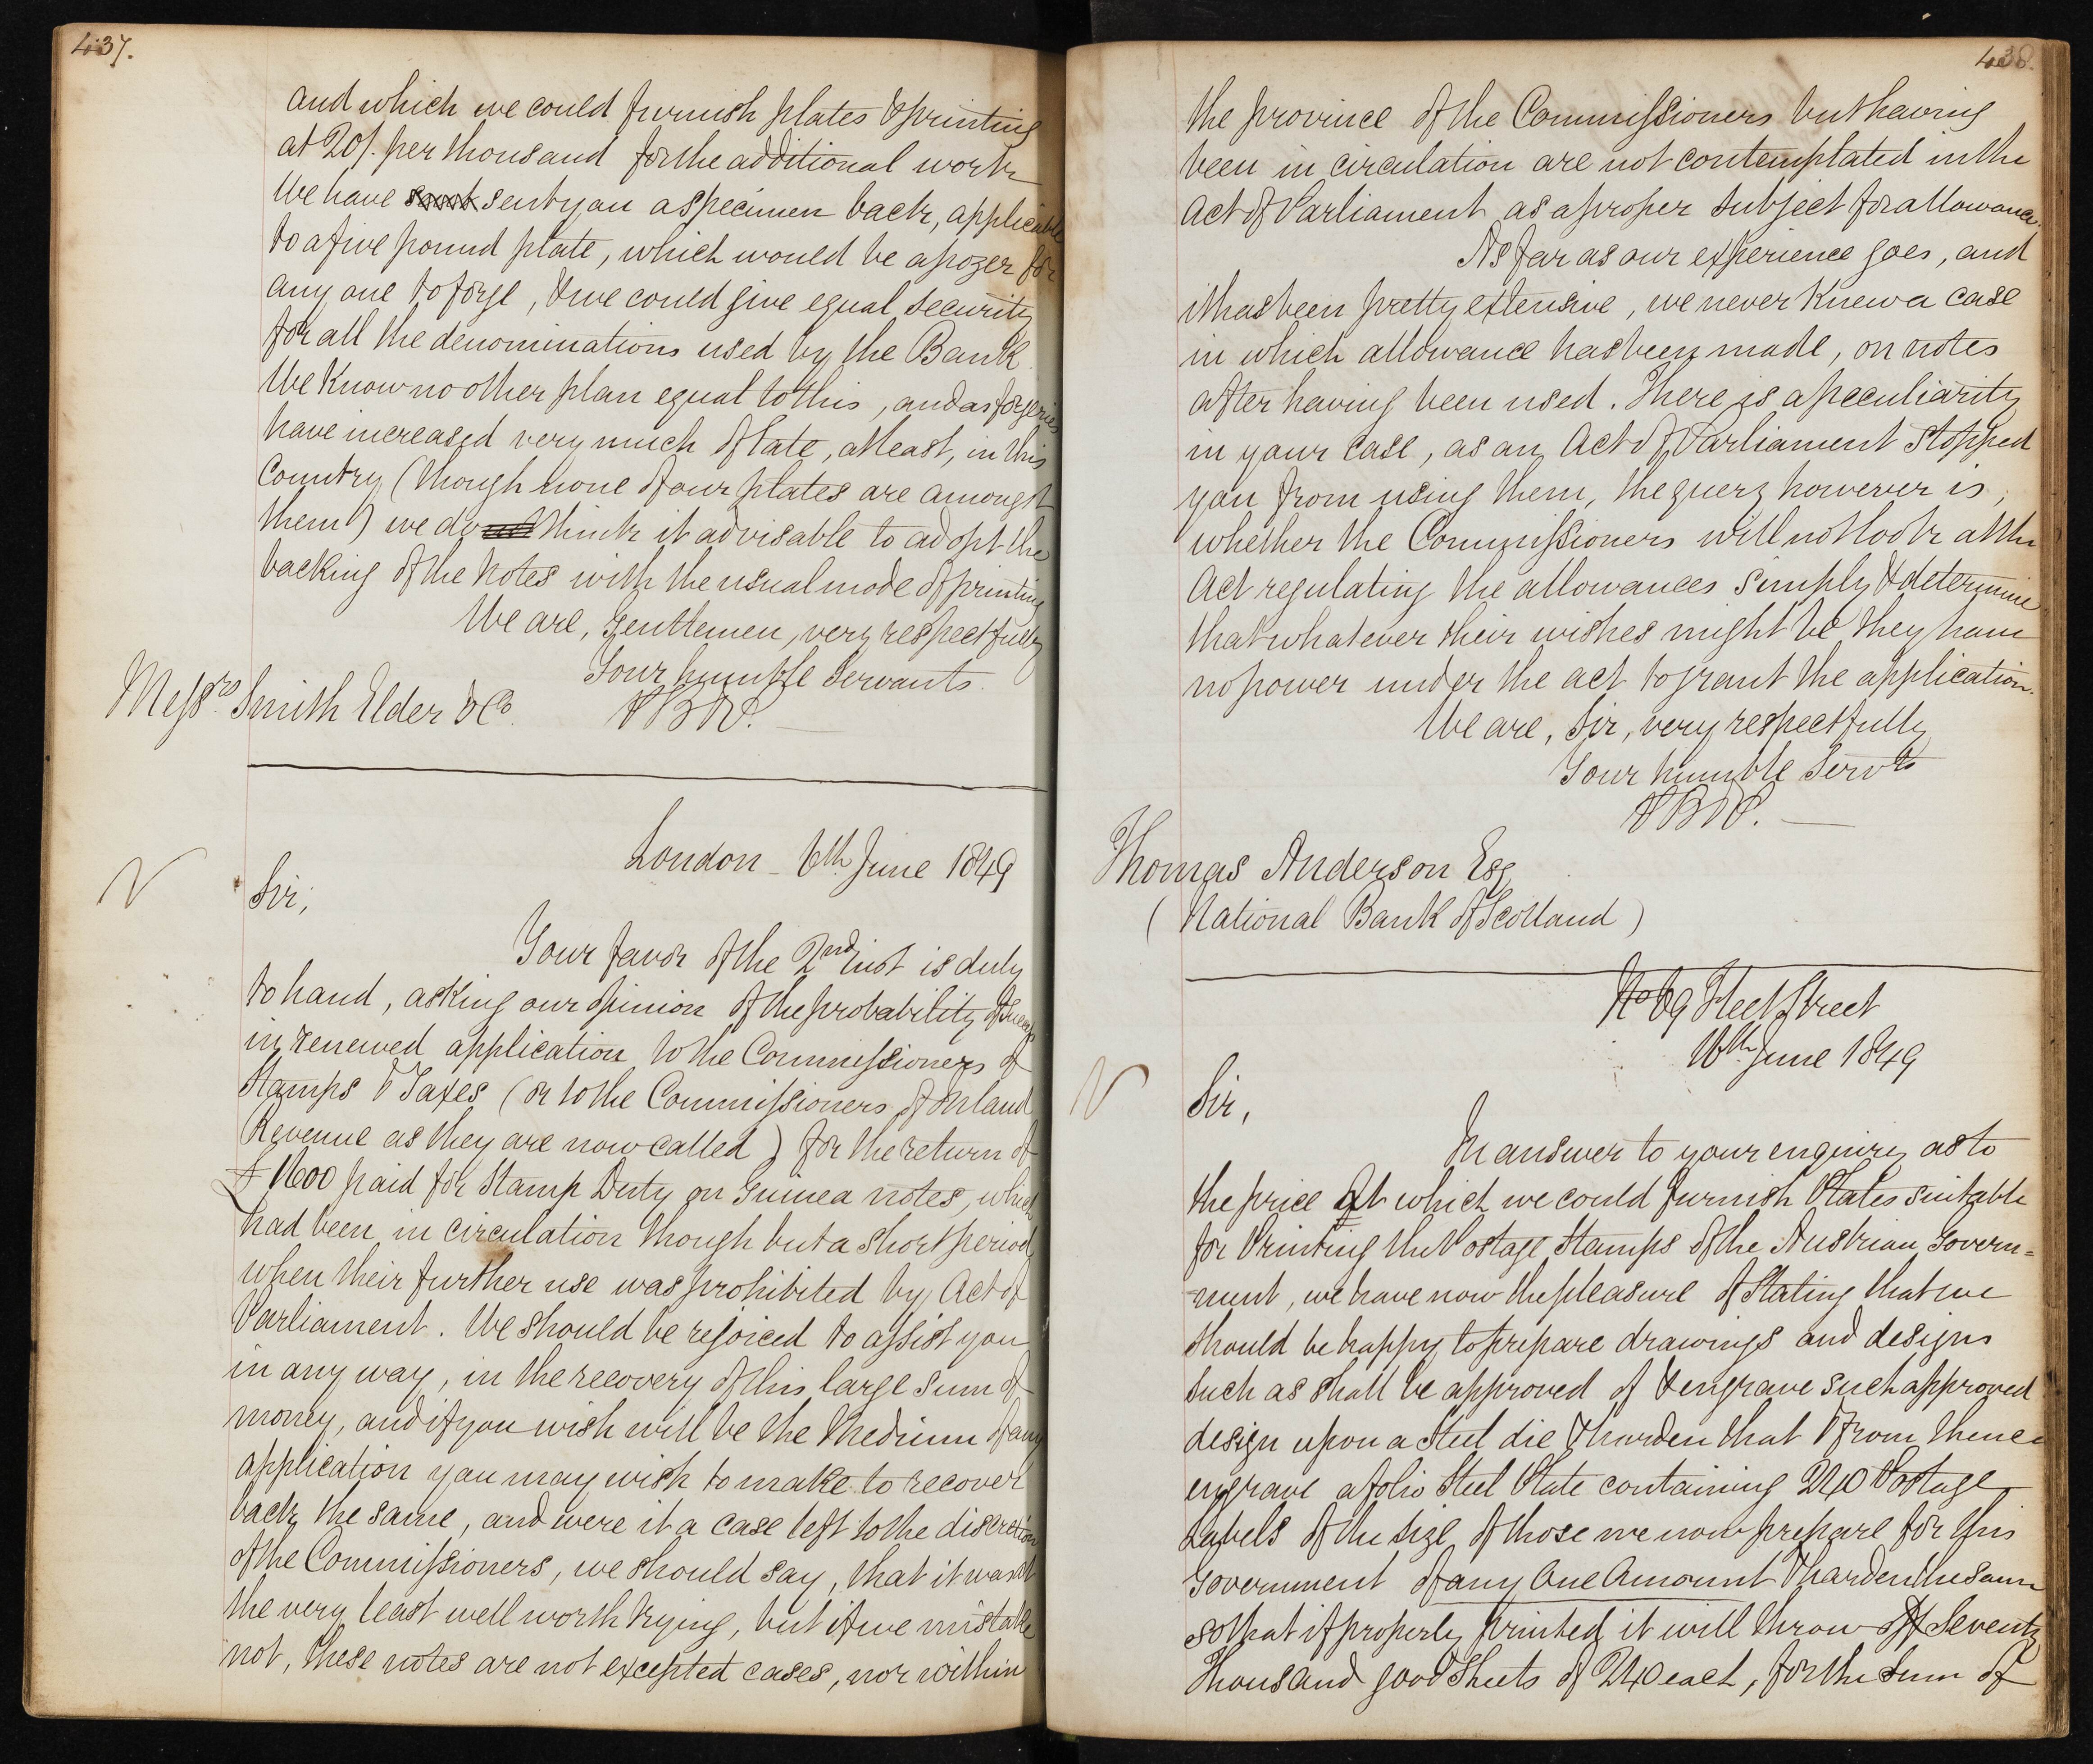 437.
and which we could furnish plates & printing
at 20/. per thousand for the additional work
We have sent you a specimen back, applicable
to a five pound plate, which would be a pozer for
any one to forge, & we could give equal security
for all the denominations used by the Bank.
We know no other plan equal to this, and as forgeries
have increased very much of late, at least, in this
Country (though none of our plates are amongst
them) we do not think it advisable to adopt the
backing of the Notes with the usual mode of printing
We are, Gentlemen, very respectfully
Your humble Servants.
PB&P.
Messrs Smith Elder & Co.
London – 6th June 1849
Sir,
Your favor of the 2nd inst is duly
to hand, asking our opinion of the probability of
in renewed application to the Commissioners of
Stamps & Taxes (or to the Commissioners of Inland
Revenue as they are now called) for the return of
£1600 paid for Stamp Duty on Guinea notes, which
had been in circulation though but a short period
when their further use was prohibited by Act of
Parliament. We should be rejoiced to assist you
in any way, in the recovery of this large sum of
money, and if you wish will be the Medium of any
application you may wish to make to recover
back the same, and were it a case left to the discretion
of the Commissioners, we should say, that it was at
the very least well worth trying, but if we mistake
not, these notes are not excepted cases, nor within
438.
the province of the Commissioners but having
been in circulation are not contemplated in the
Act of Parliament as a proper subject for allowance.
As far as our experience goes, and
it has been pretty extensive, we never knew a case
in which allowance has been made, on notes
after having been used. There is a peculiarity
in your case, as an Act of Parliament stopped
you from using them, the query however is,
whether the Commissioners will not look at the
Act regulating the allowances simply & determine
that whatever their wishes might be they have
no power under the act to grant the application.
We are, Sir, very respectfully
Your humble Servts
PB&P.
Thomas Anderson Esq
(National Bank of Scotland)
No 69 Fleet Street
16th June 1849
Sir,
In answer to your enquiry as to
the price at which we could furnish Plates suitable
for Printing the Postage Stamps of the Austrian Govern=
ment, we have now the pleasure of stating that we
should be happy to prepare drawings and designs
such as shall be approved of & engrave such approved
design upon a Steel die & harden that & from thence
engrave a folio Steel Plate containing 240 Postage
Labels of the size of those we now prepare for this
Government of any One Amount & harden the same
so that if properly printed it will throw off Seventy
Thousand good Sheets of 240 each, for the Sum of